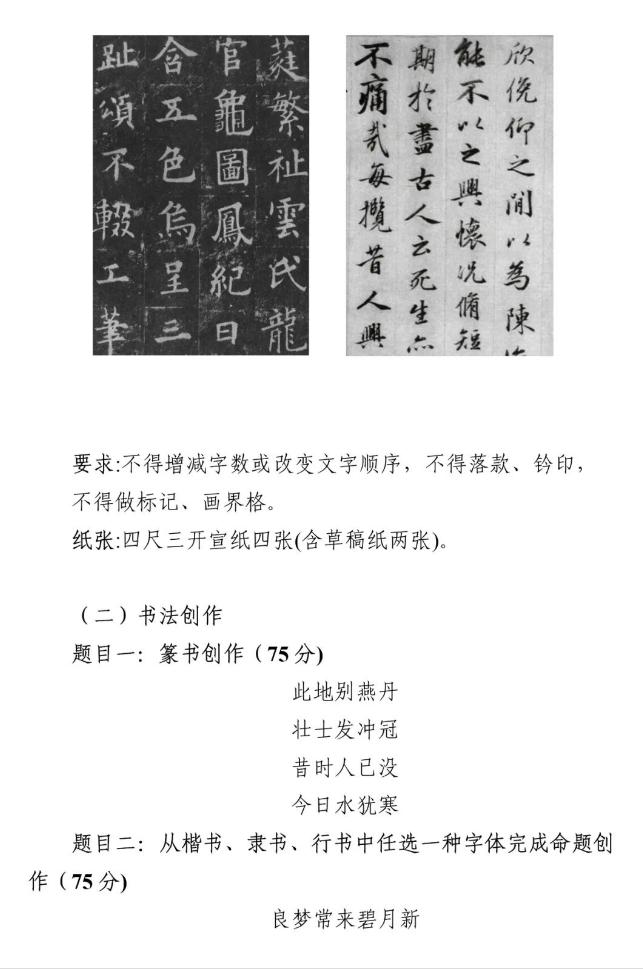 蕤繁祉雲氏龍
官龜圖鳳紀日
含五色烏呈三
趾頌不輟工筆
欣俛仰之閒以為陳
能不以之興懷況脩短
期於盡古人云死生亦
不痛哉每攬昔人興
要求:不得增减字数或改变文字顺序，不得落款、钤印，
不得做标记、画界格。
纸张:四尺三开宣纸四张(含草稿纸两张)。
（二）书法创作
题目一：篆书创作（75分)
此地别燕丹
壮士发冲冠
昔时人已没
今日水犹寒
题目二：从楷书、隶书、行书中任选一种字体完成命题创
作（75分)
良梦常来碧月新